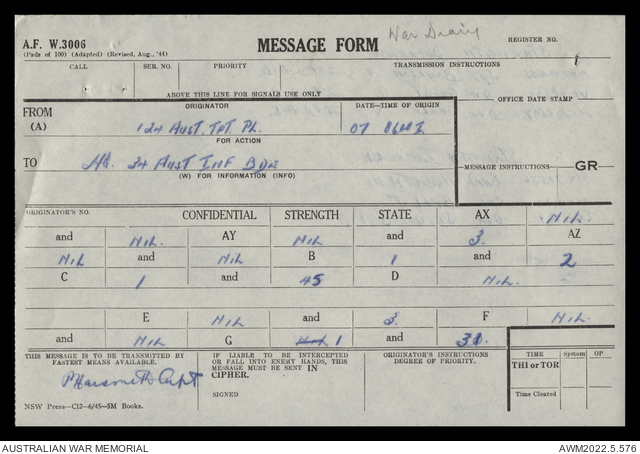 A.F. W.3006
(Pads of 100) (Adapted) (Revised, Aug., '44)
MESSAGE FORM
War Diary
REGISTER NO.
CALL SER. NO. PRIORITY TRANSMISSION INSTRUCTIONS
ABOVE THIS LINE FOR SIGNALS USE ONLY
OFFICE DATE STAMP
FROM ORIGINATOR DATE-TIME OF ORIGIN
(A) 124 Aust. Tpt. Pl. 07
FOR ACTION
TO HQ. 34 Aust Inf Bde
(W) FOR INFORMATION (INFO)
MESSAGE INSTRUCTIONS GR
ORIGINATOR'S NO. CONFIDENTIAL STRENGTH STATE AX NIL.
and NIL AY NIL and 3. AZ
NIL and NIL B 1 and 2
C 1 and 45 D NIL.
E NIL and 3. F NIL.
and NIL G 1 and 31.
THIS MESSAGE IS TO BE TRANSMITTED BY FASTEST MEANS AVAILABLE.
Capt
IF LIABLE TO BE INTERCEPTED OR FALL INTO ENEMY HANDS, THIS MESSAGE MUST BE SENT IN CIPHER.
SIGNED
ORIGINATOR'S INSTRUCTIONS
DEGREE OF PRIORITY.
TIME System OP
THI or TOR
Time Cleared
NSW Press—C12—6/45—5M Books.
AUSTRALIAN WAR MEMORIAL
AWM2022.5.576